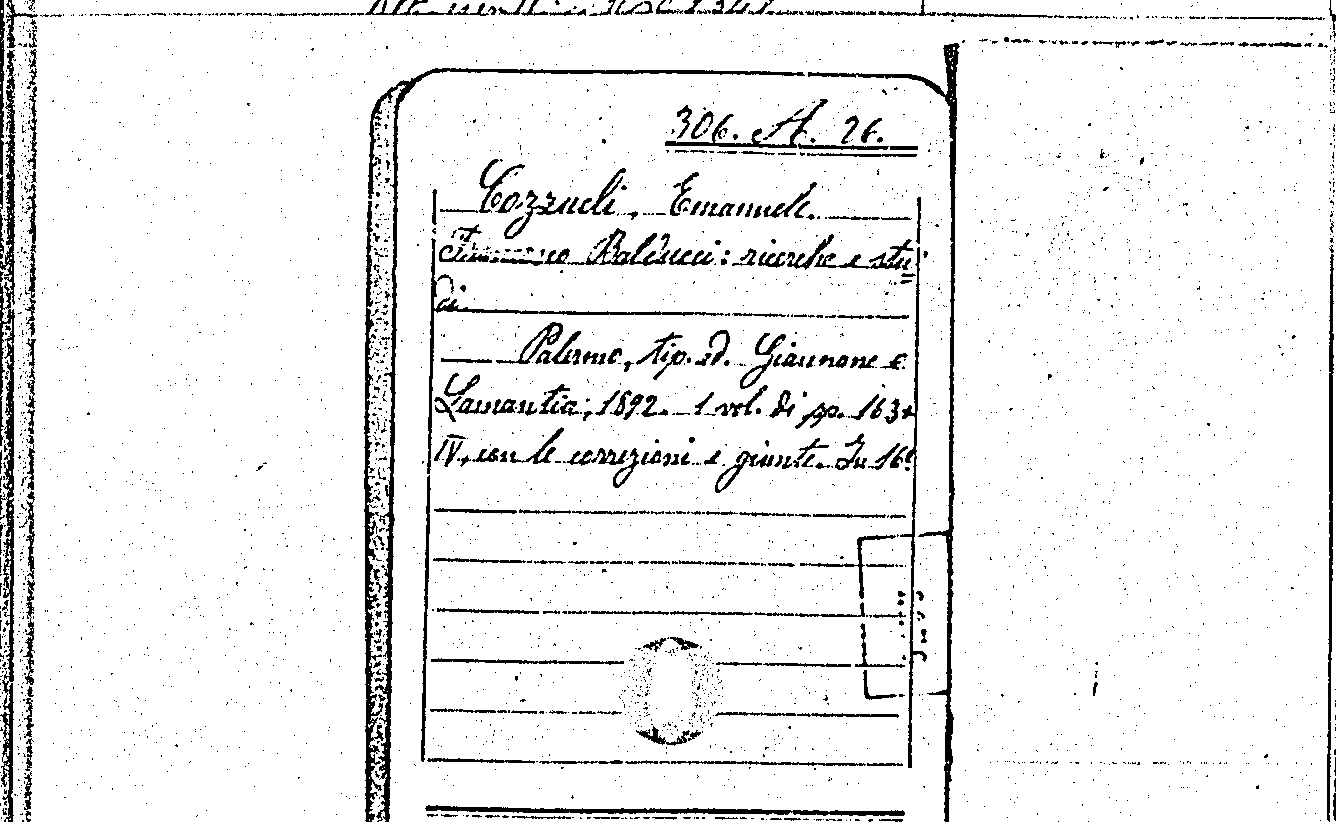 306. A. 26.
Cozzucli, Emanuele.
Francesco Balducci: ricerche e stu-
di.
Palermo, tip. ed. Giannone e
Lamantia, 1892. 1 vol. di pp. 163+
IV, con le correzioni e giunte. In 16º